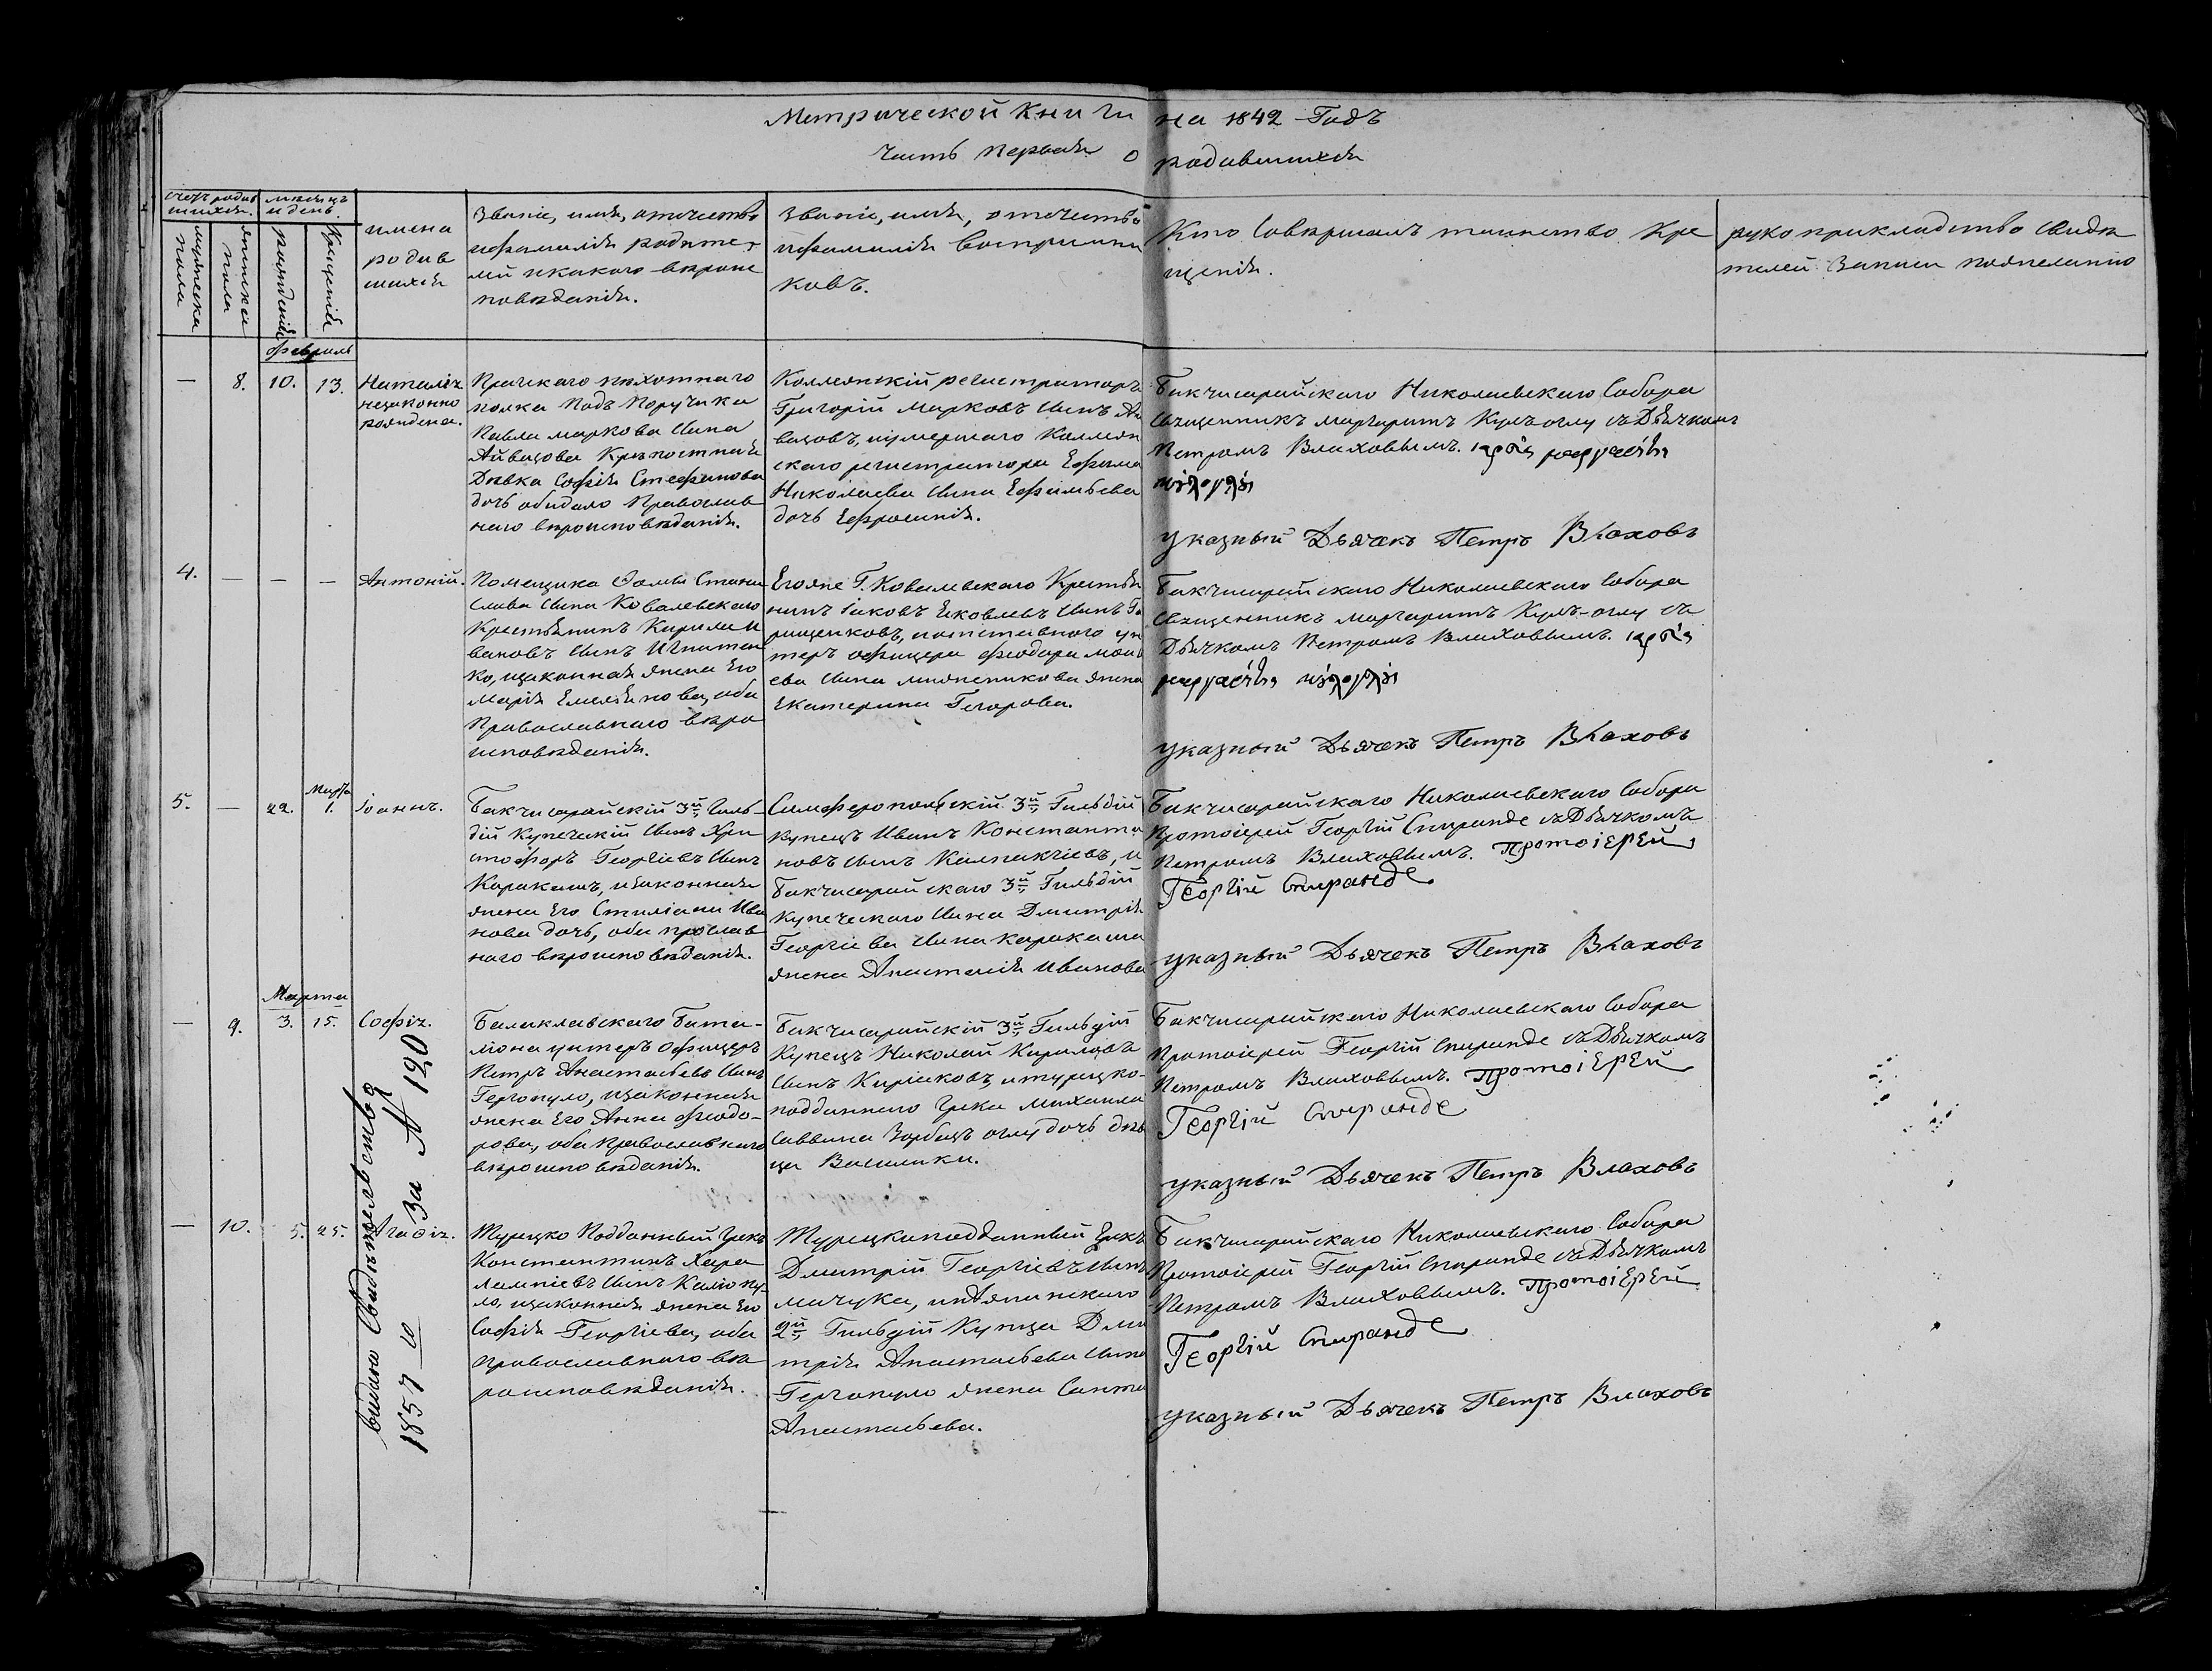 Метрической Книги на 1842 Годъ
Часть Первая о родившихся
счетъ родив
шихся.
мужеска
пола
женска
пола
месяцъ
и день.
рождения
Крещенія
имена
родив
шихся
Званіе, имя, отечество
ифамилія родите,
лей икакого вѣроис
повѣданія.
Званіе, имя, отечество
ифамилія воспріимни
ковъ.
Кто Совершалъ таинство Кре
щенія.
рукоприкладство Свидѣ
телей Записи пожеланію
февраль
— 8. 10. 13.
Наталія
незаконно
рождена.
Пражкаго пѣхотнаго
полка Подъ Поручика
Павла маркова Сина
Айвазова Крѣпостная
Дѣвка Софія Стефанова
дочь обидало Православ
наго вѣроисповѣданія.
Коллежскій регистраторъ
Григорій Марковъ Синъ Ай
вазовъ, иумершаго Коллеж
скаго регистратора Ефима
Николаева Сина Ефимьева
дочь Ефросинія.
Бакчисарайскаго Николаевскаго Собора
Священникъ Маргаритъ Кулъ-оглу съДьячкомъ
Петромъ Влаховымъ.
указный Дьячекъ Петръ Влаховъ
4. — — —
Антоній.
Помещика Фомы Стани
слава Сина Ковалевскаго
Крестьянинъ Кирила И
вановъ Синъ Игнатен
ко, изаконная жена Его
Марія Емельянова, оба
Православнаго вѣро
исповѣданія.
Егоже Г. Ковалевскаго Крестья
нинъ Іаковъ Яковлевъ Синъ Го
рященковъ, иотставного ун
теръ офицера Феодора мои
сева Сина мижетикова жена
Екатерина Гегорова.
Бакчисарайскаго Николаевскаго Собора
Священникъ Маргаритъ Кулъ-оглу съ
Дьячкомъ Петромъ Влаховымъ.
указный Дьячекъ Петръ Влаховъ
5. — 22. Марта 1.
Іоаннъ.
Бакчисарайскій 3й Гиль-
дій Купеческій Синъ Хри
стофоръ Георгіевъ Синъ
Каракашъ, изаконная
жена Его Стиліани Ива
нова дочь, оба прослав
наго вѣроисповѣданія.
Симферопольскій 3й Гильдій
Купецъ Иванъ Константи
новъ Синъ Калпакчіевъ, и
Бакчисарайскаго 3й Гильдій
Купеческаго Сина Дмитрія
Георгіева Сина Каракаша
жена Анастасія Иванова
Бакчисарайскаго Николаевскаго Собора
Протоіерей Георгій Спиранде съДьячкомъ
Петромъ Влаховымъ. Протоіерей
Георгій Спиранде
указный Дьячекъ Петръ Влаховъ
Марта
— 9. 3. 15.
Софія.
Балаклавскаго Бата-
ліона унтеръ офицеръ
Петръ Анастасьевъ Синъ
Гергопуло, изаконная
жена Его Анна Феодо-
рова, оба Православнаго
вѣроисповѣданія.
Бакчисарайскій 3й Гильдій
Купецъ Николай Кириловъ
Синъ Киріаковъ, итурецко-
подданнаго Грека Михаила
Саввина Зарбацъ оглу дочь дѣв
ца Василики.
Бакчисарайскаго Николаевскаго Собора
Протоіерей Георгій Спиранде съДьячкомъ
Петромъ Влаховымъ. Протоіерей
Георгій Спиранде
указный Дьячекъ Петръ Влаховъ
видано Свидѣтельство
1857 го За № 120
— 10. 5. 25.
Агафія.
Турецко Подданный Грекъ
Константинъ Хара
лампіевъ Синъ Каліопу-
ло, изаконная жена Его
Софія Георгіева, оба
православнаго вѣ
роисповѣданія.
Турецкиподданный Грекъ
Дмитрій Георгіевъ Синъ
мачука, и
2й Гильдій Купца Дми
трія Анастасьева Сина
Гергопуло жена Санта
Анастасьева.
Бакчисарайскаго Николаевскаго Собора
Протоіерей Георгій Спиранде съДьячкомъ
Петромъ Влаховымъ. Протоіерей
Георгій Спиранде
указный Дьячекъ Петръ Влаховъ